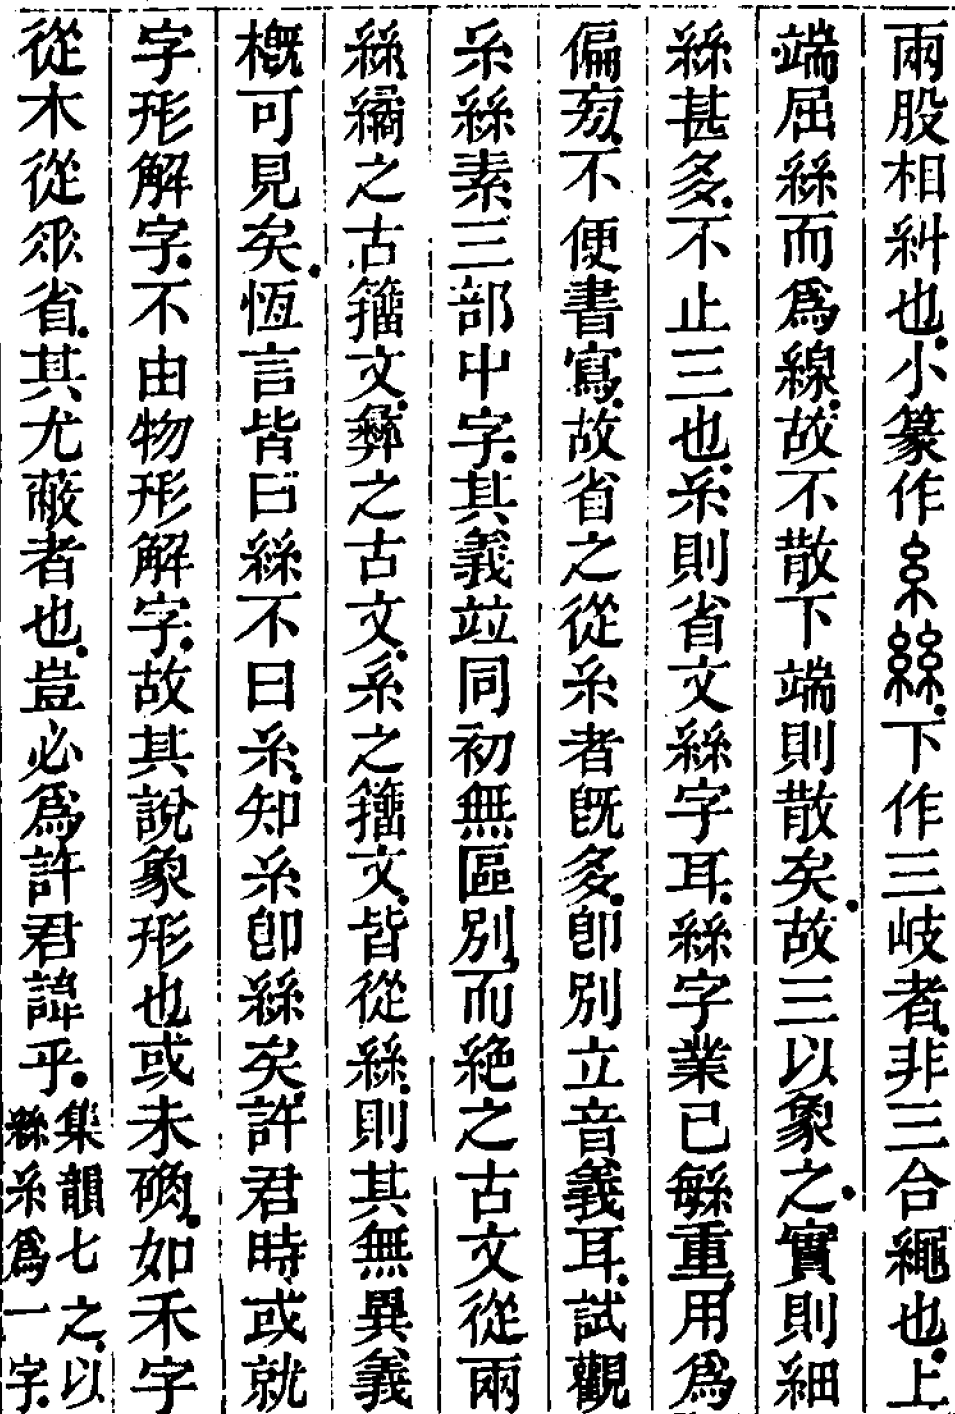 兩股相糾也小篆作糸絲下作三岐者非三合繩也上
端屈絲而爲線故不散下端則散矣故三以象之實則細
絲甚多不止三也糸則省文絲字耳絲字業已緐重用爲
偏旁不便書寫故省之從糸者旣多卽別立音義耳試觀
糸絲素三部中字其義竝同初無區別而絶之古文從兩
絲繘之古籀文彝之古文系之籀文皆從絲則其無異義
槪可見矣恆言皆曰絲不曰糸知糸卽絲矣許君時或就
字形解字不由物形解字故其說象形也或未确如禾字
從木從𠂹省其尤蔽者也豈必爲許君諱乎
集韻七之以
緜糸爲一字